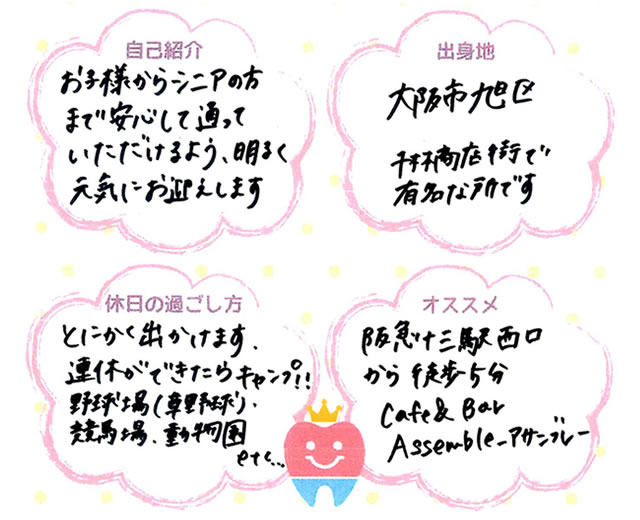 自己紹介
お子様からシニアの方
まで安心して通って
いただけるよう、明るく
元気にお迎えします
出身地
大阪市旭区
千林商店街で
有名な所です
休日の過ごし方
とにかく出かけます.
連休ができたらキャンプ!!
野球場(草野球)、
競馬場、動物園
etc...
オススメ
阪急十三駅西口
から徒歩5分
Cafe & Bar
Assemble-アサンブレー